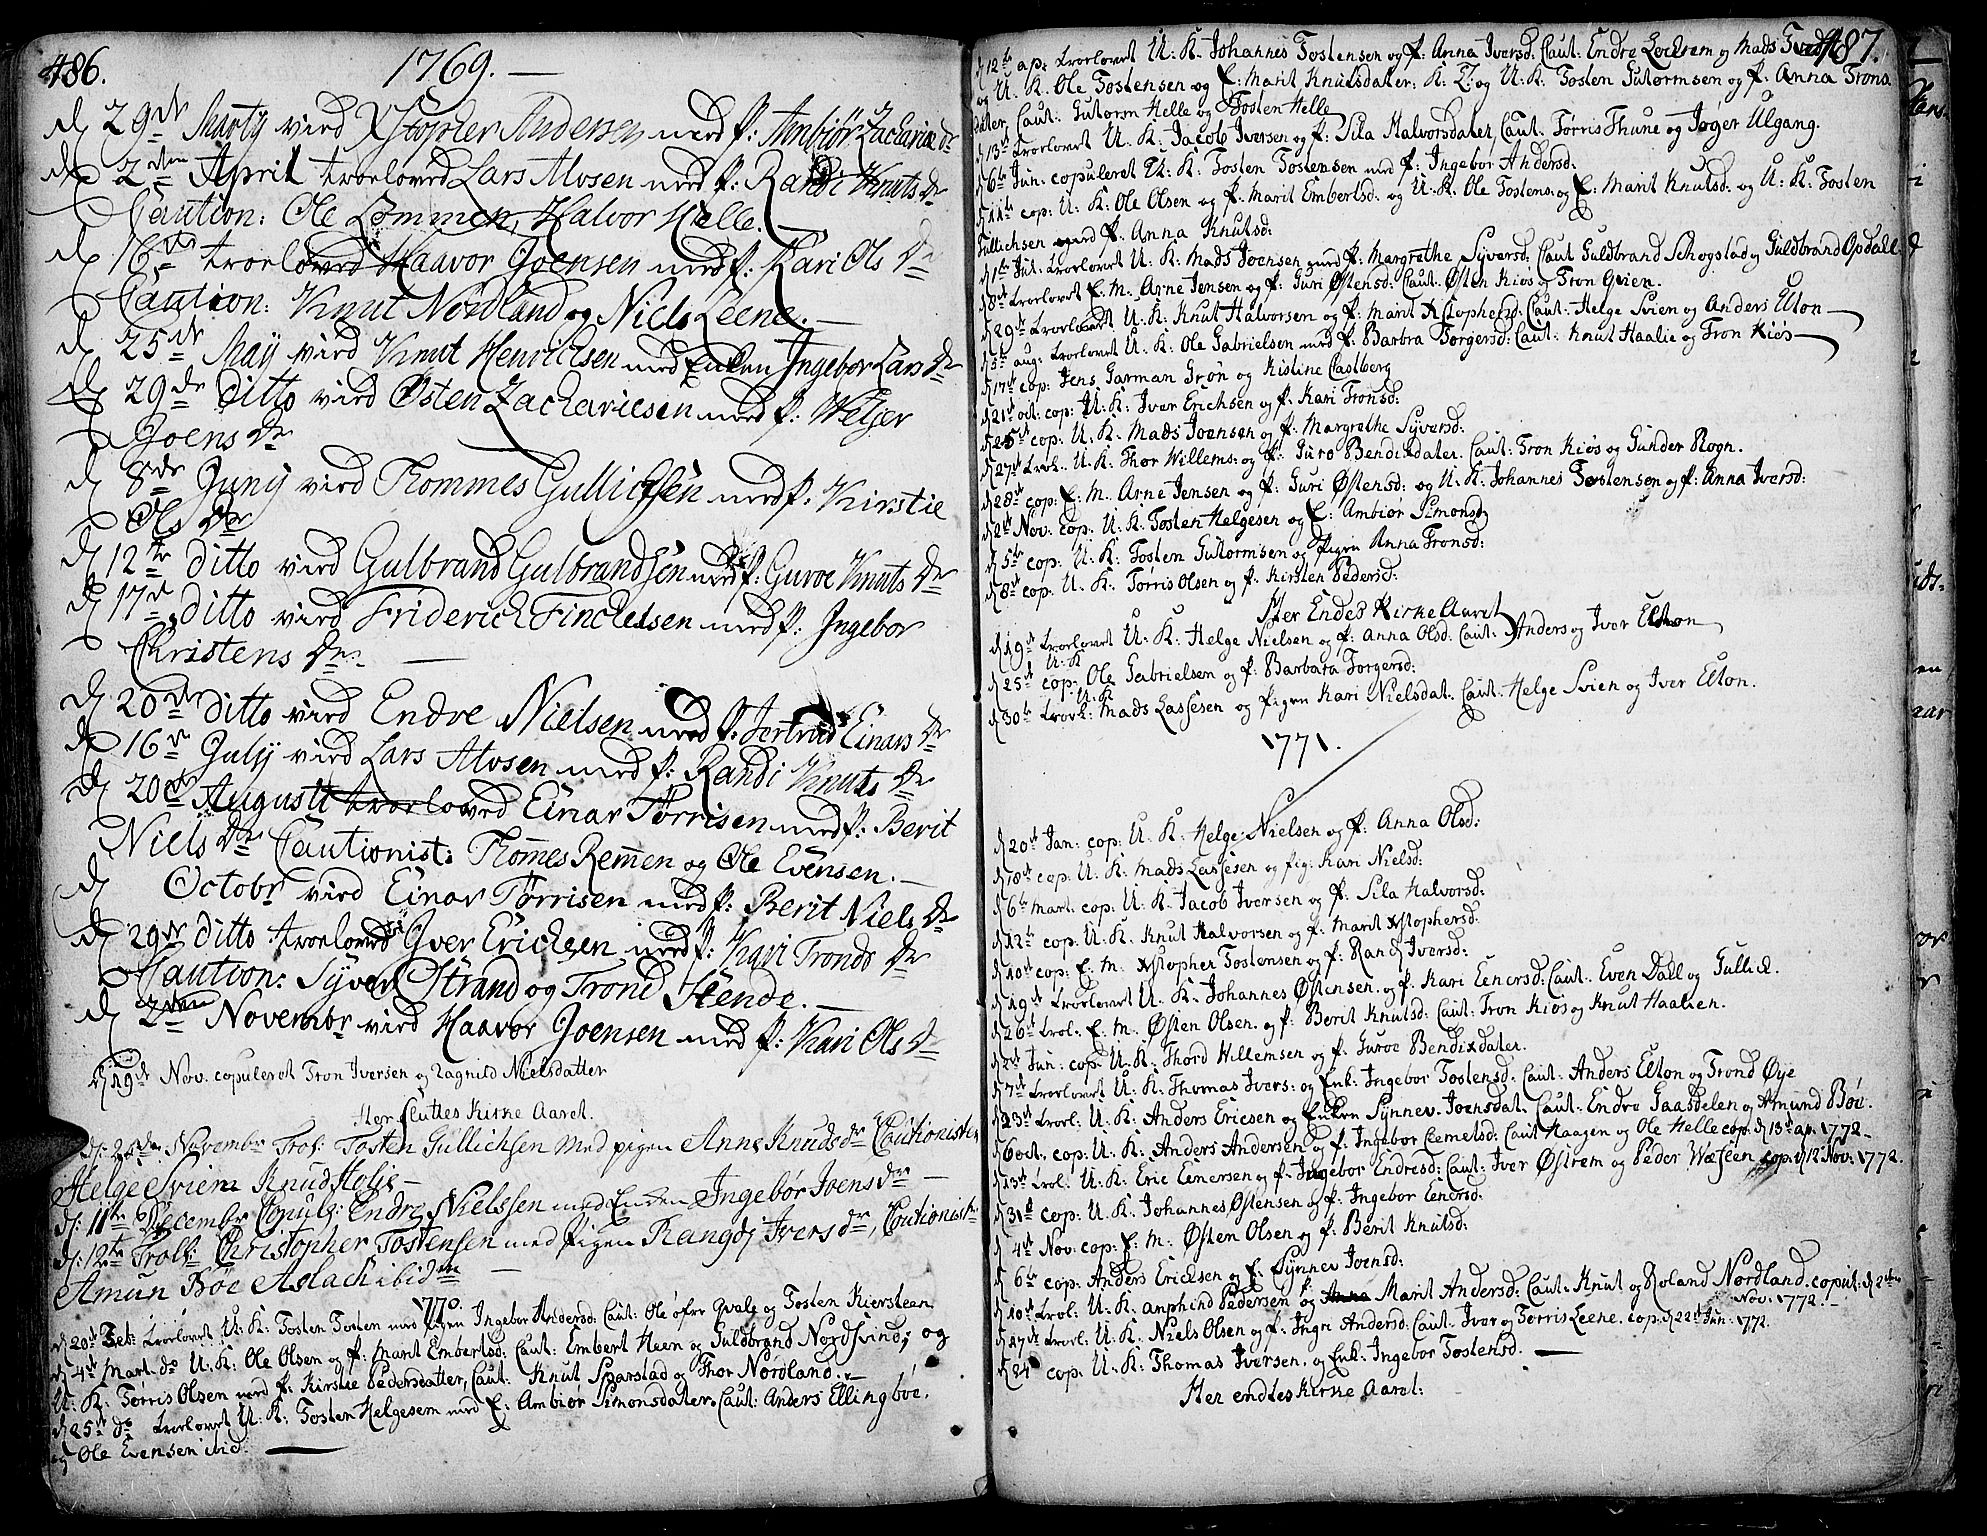 486.
1769. —
d 29de Martij vied Xstopher Andersen med P: Ambiør Zachariæ Dr
d 2den April troeloved Lars Alvsen med P: Randi Knuts Dr
Caution: Ole Lommen, Halvor Helle. —
d 16de troeloved Haavor Joensen med P: Kari Ols Dr
Caution: Knut Nordland og Niels Leene. —
d 25de Maij vied Knut Henrichsen med Enken Ingebor Lars Dr
d 29de Ditto vied Østen Zachariesen med P: Weljer
Joens Dr
d 8de Junij vied Thommes Gullichsen med P: Kirstie
Ols Dr
d 12te Ditto vied Gulbrand Gulbrandsen med P: Guroe Knuts Dr
d 17de Ditto vied Friderich Finckelsen med P: Ingebor
Christens Dr. —
d 20de Ditto vied Endre Nielsen med P: Jertrud Einars Dr
d 16de Julij vied Lars Alvsen med P: Randi Knuts Dr
d 20de Augustj troeloved Einar Tørrisen med P: Berit
Niels Dr Cautionist: Thomes Remen og Ole Evensen. —
d Octobr vied Einar Tørrisen med P: Berit Niels Dr
d 29de Ditto troeloved Iver Erichsen med P: Kari Tronds Dr
Caution: Syver Strand og Trond Stende. —
d 2den Novembr vied Haavor Joensen med P: Kari Ols Dr
d 19de Nov. copuleret Tron Iversen og Ragnild Nielsdatter
Her sluttes Kirke Aaret.
d: 26de Novembr Trol: Tosten Gullichsen med pigen Anne Knudsdr Cautionister
Helge Svien Knud Holie —
d: 11te December Copul: Endre Nielssen med Enken Ingebør Joensdr —
d: 12te Trol: Christopher Tostensen med Pigen Rangdj Iversdr, Cautionister
Amun Bøe Aslach ibidm —
1770.
d 20de Feb: trolovet U: K: Tosten Tosten med pigen Ingebor Andersd: Caut: Ole øfre Qvale og Tosten Kiersteen
d 4de Mart. do U: K: Ole Olsen og P: Marit Embertsd: Caut: Embert Heen og Guldbrand Nordsvind; og
U: K: Tørris Olsen med P: Kirstie Pedersdatter, Caut: Knut Sparstad og Thor Nordland. —
d 25de do trolovet U: K: Tosten Helgesen med E: Ambiør Simonsdater. Caut: Anders Ellingbøe.
og Ole Evensen ibid: —
487.
d 12te ap: trolovet U: K: Johannes Tostensen og P: Anna Iversd: Caut: Endre Lockrem og Mads
og U. K. Ole Tostensen og E: Marit Knutsdater: K: T: og U: K: Tosten Gutormsen og P: Anna Trons
dater, Caut: Gutorm Helle og Tosten Helle
d 13te trolovet U: K: Jacob Iversen og P: Sila Halvorsdater, Caut: Tørris Thune og Jøger Ulgang.
d 6te Jun: copuleret U: K: Tosten Tostensen med P: Ingebor Andersd:
d 11te cop: U: K: Ole Olsen og P: Marit Embertsd: og U: K: Ole Tostens: og E: Marit Knutsd: og U: K: Tosten
Gullichsen med P: Anna Knutsd:
d 1te Jul: trolovet U: K: Mads Joensen med P: Margrethe Syversd: Caut Guldbrand Schogstad og Guldbrand Opdall
d 8de trolovet E: M: Arne Jensen og P: Guri Østensd: Caut: Østen Kiøs og Tron Qvien.
d 29de trolovet U: K: Knut Halvorsen og P: Marit Xstophersd: Caut: Helge Svien og Anders Elton —
d 5te aug: trolovet U: K: Ole Gabrielsen med P: Barbra Torgersd: Caut: Knut Haalie og Tron Kiøs —
d 17de cop: Jens Garman Grøn og Kistine Castberg
d 21de oct: cop: U: K: Iver Erichsen og P: Kari Tronsd:
d 25de cop: U. K. Mads Joensen og P: Margrethe Syversd:
d 27de trol. U. K: Thor Willems: og P: Guro Bendixdater. Caut: Tron Kiøs og Gunder Rogn.
d 28de cop: E: M: Arne Jensen og P: Guri Østensd: og U: K: Johannes Tostensen og P: Anna Iversd:
d 2de Nov. cop: U: K: Tosten Helgesen og E: Ambiør Simonsd
d 5te cop: U: K: Tosten Gutormsen og Pigen Anna Tronsd:
d 8de cop: U: K: Tørris Olsen og P: Kirsten Pedersd:
Her Endes Kirke Aaret
d 19de trolovet U: K: Helge Nielsen og P: Anna Olsd: Caut: Anders og Iver Elton
d 25de cop: U: K Ole Gabrielsen og P: Barbara Torgersd:
d 30te trol: U: K Mads Lassesen og Pigen Kari Nielsdat. Caut: Helge Svien og Iver Elton.
1771.
d 20de Jan: cop: U: K: Helge Nielsen og P: Anna Olsd:
d cop: U: K: Mads Lassesen og pig: Kari Nielsd:
d 6te Mart: cop: U: K: Jacob Iversen og P: Sila Halvorsd:
d 12te cop: U: K: Knut Halvorsen og P: Marit Xstophersd:
d 10de cop: E: M: Xstopher Tostensen og P: Randj Iversd:
d 19de trolovet U: K: Johannes Østensen. og P: Kari Eenersd: Caut: Even Dall og Gullick.
d 26de trol: E: M: Østen Olsen. og P: Berit Knutsd: Caut: Tron Kiøs og Knut Haalien.
d 2de Jun: cop: U: K: Thord Willemsen og P: Guroe Bendixdater.
d 7de trolovet U: K: Thomas Ivers: og Enk: Ingebor Tostensd: Caut: Anders Elton og Trond Øye
d 23de trol: U: K: Anders Ericsen og Enken Synnev. Joensdat. Caut: Endre Gaasdelen og Amund Bøe.
d 6 oct. cop: U: K: Anders Andersen og P: Ingebor Clemetsd: Caut Haagen og Ole Helle cop: d 13de ap: 1772 —
d 13de trol: U: K: Eric Einersen og P: Ingebor Endresd: Caut: Iver Østrem og Peder Wæseen cop: d 12 Nov: 1772.
d 31de cop: U: K: Johannes Østensen og P: Ingebor Einersd:
d 4de Nov: cop: E: M: Østen Olsen og P: Berit Knutsd:
d 6te cop: Anders Ericksen og E: Synnev Joensd:
d 10de trol: U: K: anphind Pedersen og Marit Andersd: Caut: Knut og Roland Nordland. copul: d
Nov: 1772. —
d 17de trol: U: K: Niels Olsen og P: Ingri Andersd: Caut: Iver og Tørris Leene. cop: d 22de Jun: 1772.
d 24de cop: U: K: Thomas Iversen, og Enk: Ingebor Tostensd. —
Her endtes Kirke Aaret: